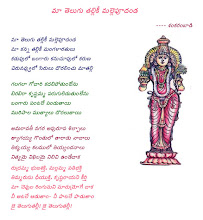 మా తెలుగు తల్లికీ మల్లెపూదండ
---- శంకరంబాడి
మా తెలుగు తల్లికీ మల్లెపూదండ
మా కన్న తల్లికీ మంగళారతులు
కడుపులో బంగారు కనుచూపులో కరుణ
చిరునవ్వులో సిరులు దొరలించు మాతల్లి
గలగలా గోదారి కదలిపోతుంటేను
బిరబిరా క్రిష్ణమ్మ పరుగులిడుతుంటేను
బంగారు పంటలే పండుతాయి
మురిపాల ముత్యాలు దొరలుతాయి
అమరావతీ నగర అపురూప శిల్పాలు
త్యాగయ్య గొంతులో తారాడు నాదాలు
తిక్కయ్య కలములో తియ్యందనాలు
నిత్యమై నిఖిలమై నిలిచి ఉండేదాక
రుద్రమ్మ భుజశక్తి మల్లమ్మ పతిభక్తి
తిమ్మరుసు ధీయుక్తి, కృష్ణరాయని కీర్తి
మా చెవుల రింగుమని మారుమ్రోగే దాక
నీ ఆటలే ఆడుతాం- నీ పాటలే పాడుతాం
జై తెలుగుతల్లీ! జై తెలుగుతల్లీ!